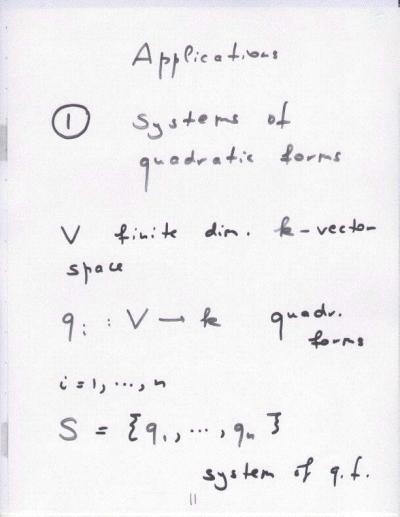 Applications
① Systems of
quadratic forms
V finite dim. k-vector
space
qᵢ : V → k quadr.
forms
i = 1, ..., n
S = {q₁, ..., qₙ}
system of q.f.
11